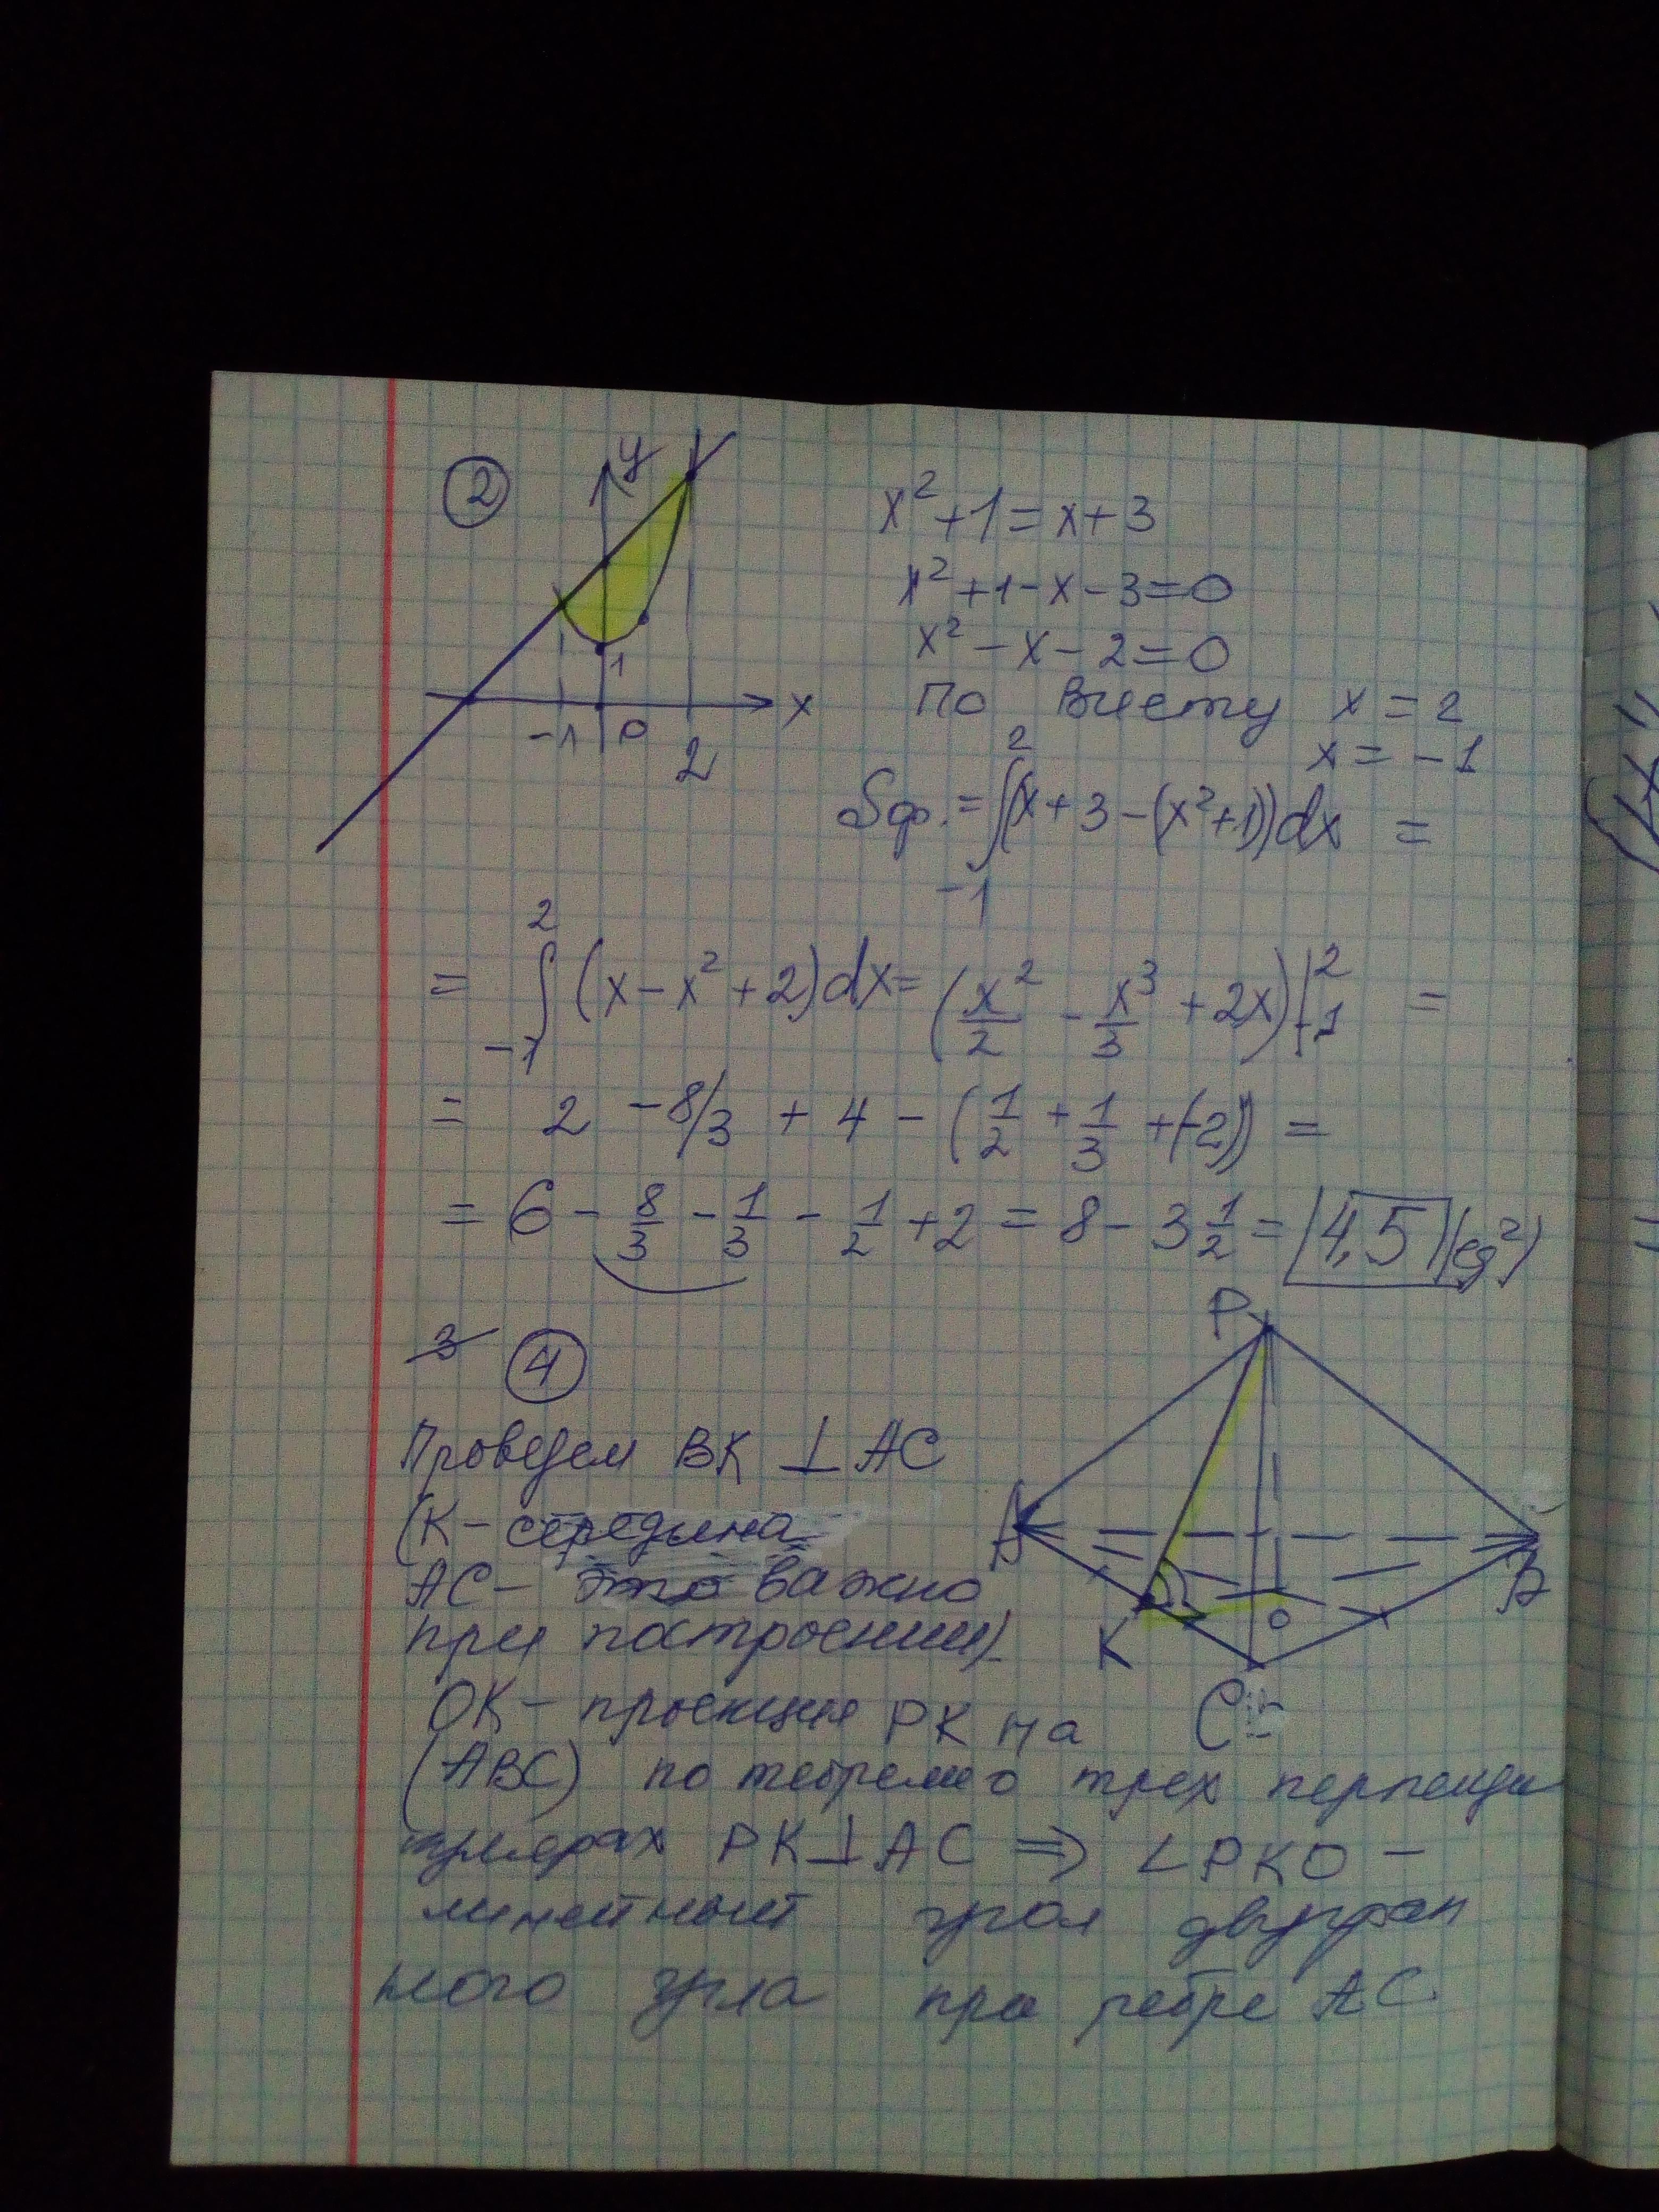 ②
y
x
1
-1 0 2
x² + 1 = x + 3
x² + 1 - x - 3 = 0
x² - x - 2 = 0
По Виету x = 2
x = -1
Sф. = ∫₋₁² (x + 3 - (x² + 1))dx =
= ∫₋₁² (x - x² + 2)dx = (x²/2 - x³/3 + 2x)|₋₁² =
= 2 - 8/3 + 4 - (1/2 + 1/3 + (-2)) =
= 6 - 8/3 - 1/3 - 1/2 + 2 = 8 - 3 1/2 = 4,5 (ед²)
3 ④
P
A
B
K
O
C
Проведем BK ⊥ AC
(K - середина
AC - это важно
при построении).
OK - проекция PK на
(ABC) по теореме о трех перпенди
кулярах PK ⊥ AC ⇒ ∠PKO -
линейный угол двугран
ного угла при ребре AC.